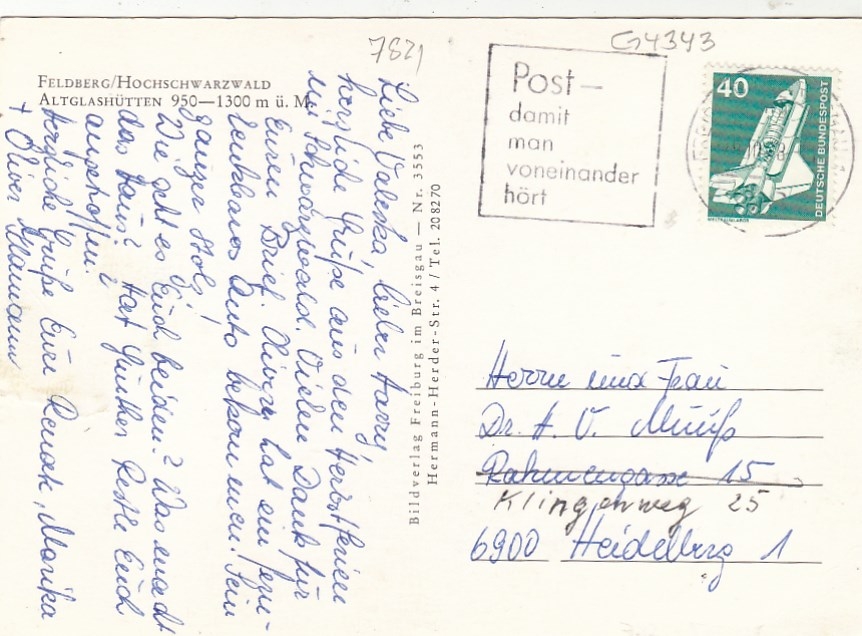 7821
G4343
FELDBERG/HOCHSCHWARZWALD
ALTGLASHÜTTEN 950—1300 m ü. M.
Liebe Valeska, lieber Harry,
herzliche Grüße aus den Herbstferien
im Schwarzwald. Vielen Dank für
Euren Brief. Oliver hat ein fern-
lenkbares Auto bekommen. Sein
ganzer Stolz!
Wie geht es Euch beiden? Was macht
das Haus? Hat Günther Euch
angetroffen?
Herzliche Grüße Eure Renate, Marika
+ Oliver
Bildverlag Freiburg im Breisgau — Nr. 3553
Hermann-Herder-Str. 4 / Tel. 208270
Post—
damit
man
voneinander
hört
40
DEUTSCHE BUNDESPOST
Herrn und Frau
Dr. H. V.
Rahmengasse 15
Klingenweg 25
6900 Heidelberg 1